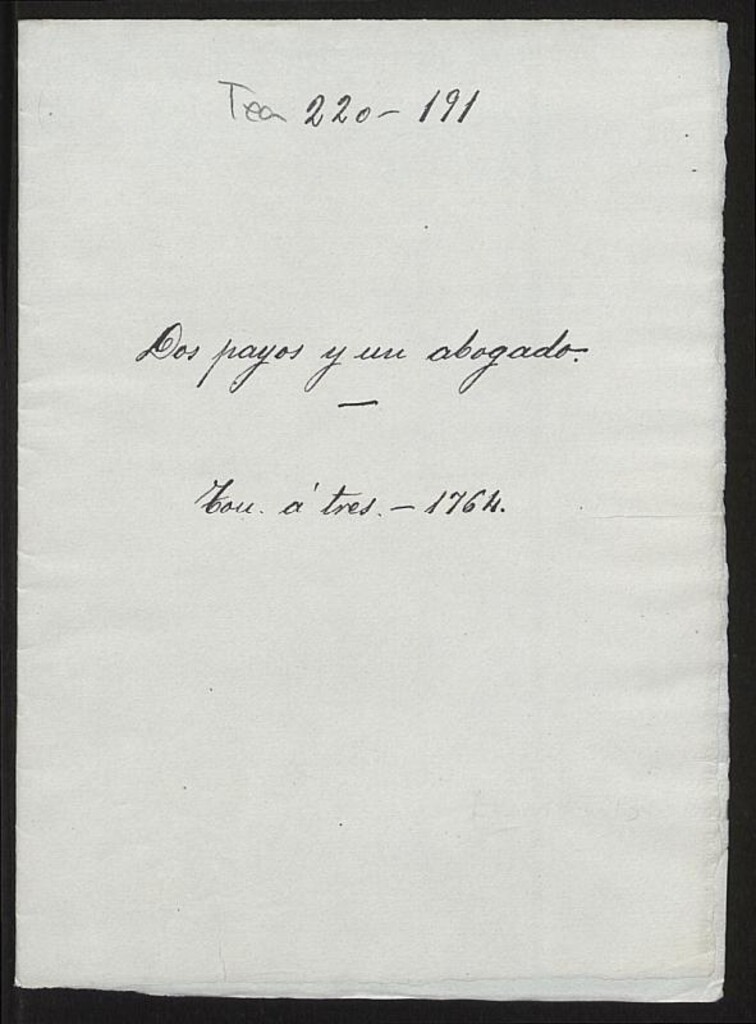 Tea 220-191
Dos payos y un abogado.
Ton. á tres. - 1764.